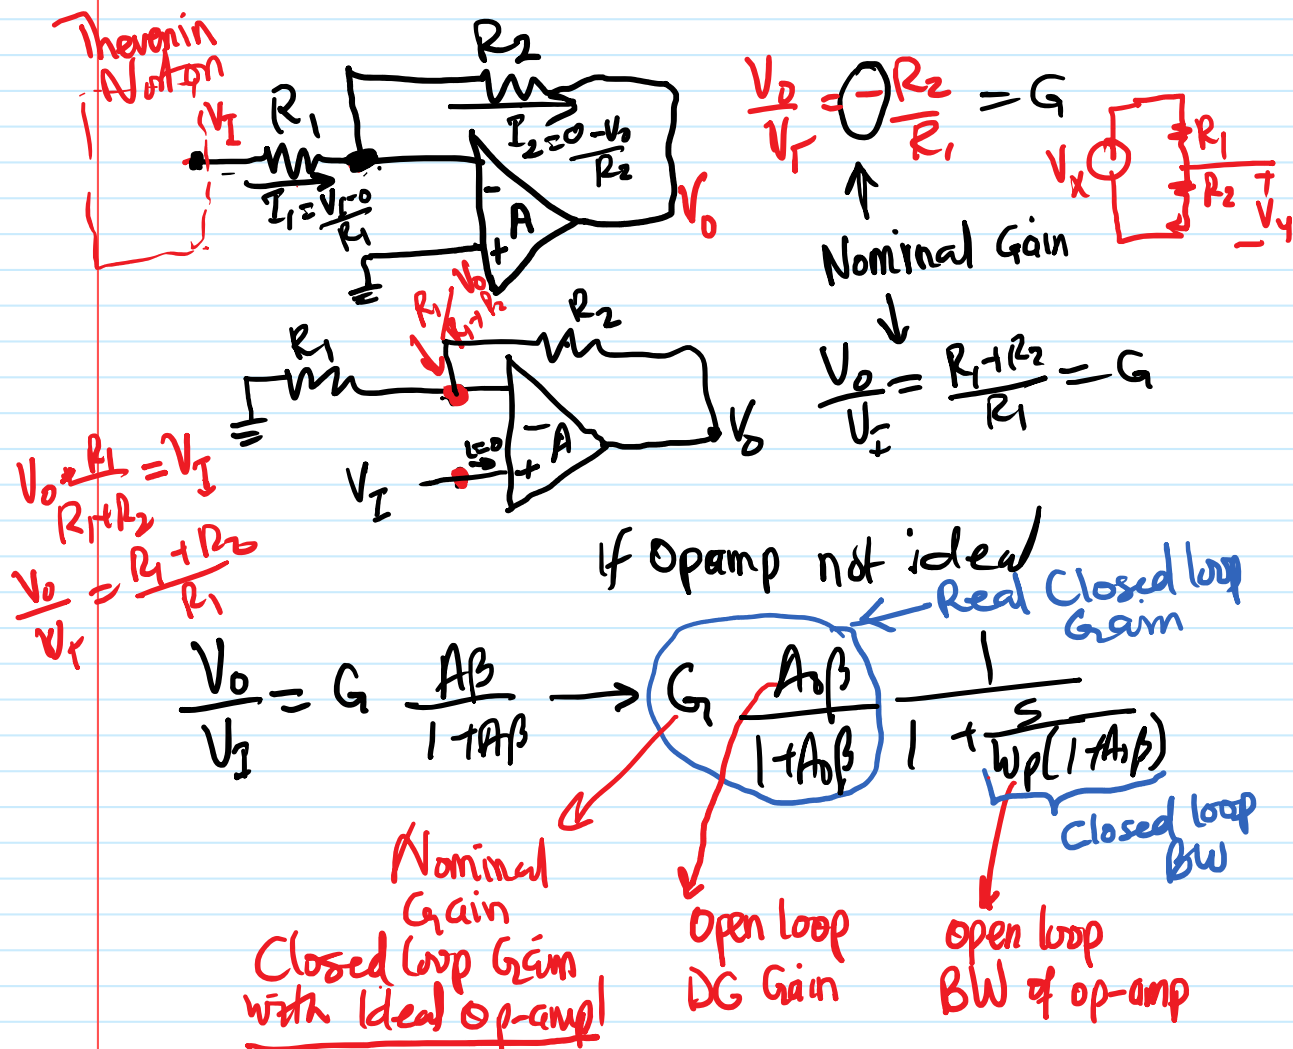 Thevenin
Notion
V_I
R_1
R_2
I_1 = (V_I - 0)/R_1
I_2 = (0 - V_0)/R_2
-
A
+
V_0
V_0/V_I = -R_2/R_1 = G
V_x
R_1
R_2
+
V_y
-
Nominal Gain
R_1
R_1/(R_1+R_2) V_0
R_2
V_0/V_I = (R_1+R_2)/R_1 = G
-
A
+
i=0
V_I
V_0
V_0 * R_1/(R_1+R_2) = V_I
V_0/V_I = (R_1+R_2)/R_1
If opamp not ideal
Real Closed loop
Gain
V_0/V_I = G Aβ/(1+Aβ) → G A_0β/(1+A_0β) 1/(1 + s/(w_p(1+A_0β)))
Closed loop
BW
Nominal
Gain
Closed loop Gain
with Ideal op-amp!
open loop
DG Gain
open loop
BW of op-amp